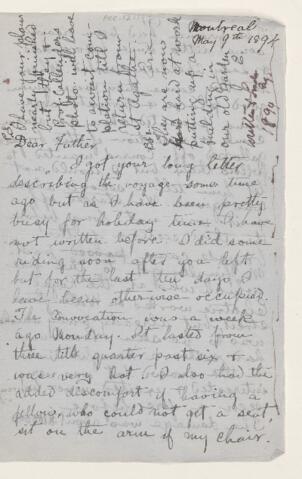 Montreal
May 9th 1894
Dear Father
I got your long letter
describing the voyage some time
ago but as I have been pretty
busy for holiday time I have
not written before. I did some
riding soon after you left
but for the last ten days I
have been otherwise occupied.
The Convocation was a week
ago Monday. It lasted from
three till quarter past six &
was very hot & I also had the
added discomfort of having a
fellow, who could not get a seat,
sit on the arm of my chair.
I have your
nearly finished
but
photo will have
to await com-
pletion till I
return from
St Agathe
They are now
hard at work
putting up a
building in
our old garden